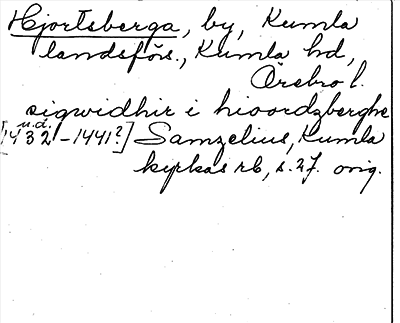 Hjortsberga, by, Kumla
landsförs., Kumla hd,
Örebro l.
sigwidhir i hioordzberghe
u.d.
[1432-1441?] Samzelius, Kumla
kyrkas rb, s. 27. orig.